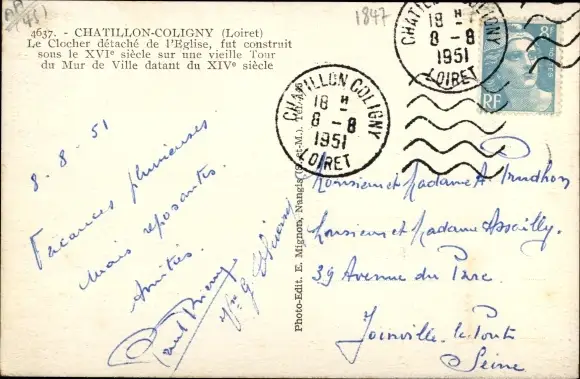 4637. - CHATILLON-COLIGNY (Loiret)
Le Clocher détaché de l'Eglise, fut construit
sous le XVIe siècle sur une vieille Tour
du Mur de Ville datant du XIVe siècle
1847
CHATILLON COLIGNY
18 H
8 - 8
1951
LOIRET
CHATILLON COLIGNY
18 H
8 - 8
1951
LOIRET
8F
POSTES
RF
8-8-51
Vacances pluvieuses
mais reposantes.
Amitiés.
Photo-Edit. E. Mignon, Nangis (S.-et-M.).
Monsieur et Madame A. Prudhon
Monsieur et Madame Assailly.
39 Avenue du Parc
Joinville-le-Pont
Seine